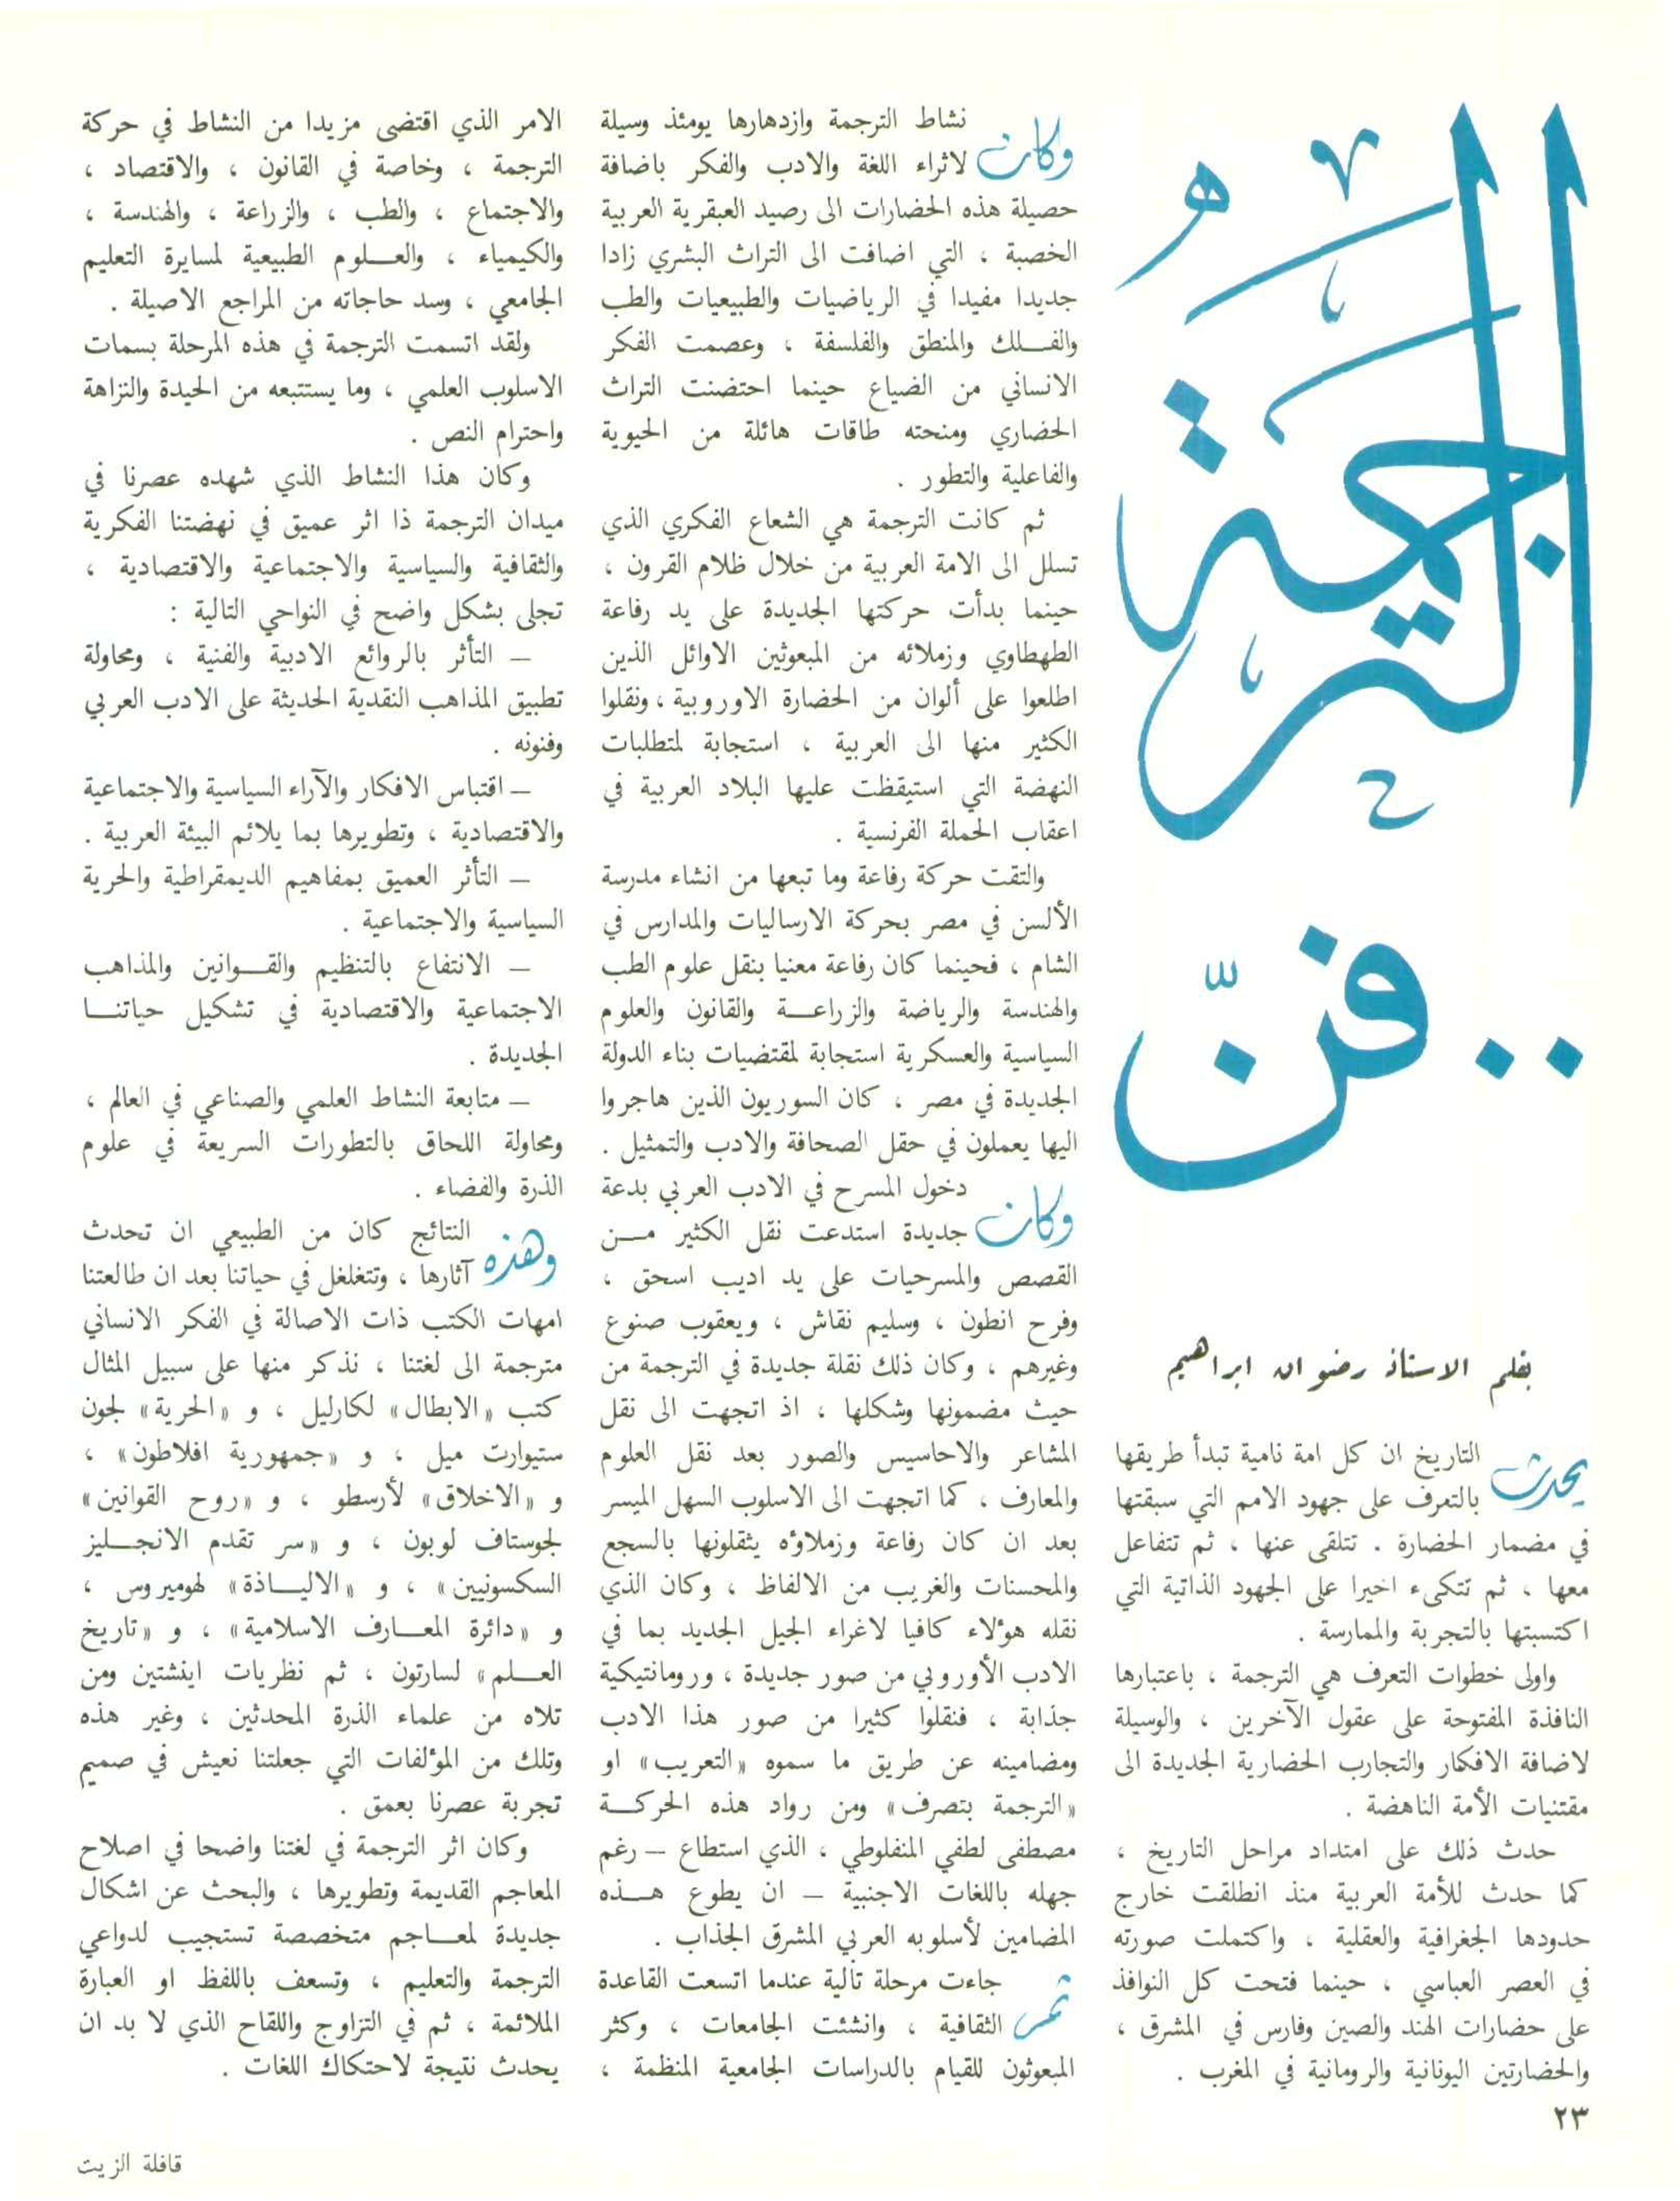 الترجمة
.. فنّ
بقلم الاستاذ رضوان ابراهيم
يحدث التاريخ ان كل امة نامية تبدأ طريقها
بالتعرف على جهود الامم التي سبقتها
في مضمار الحضارة . تتلقى عنها ، ثم تتفاعل
معها ، ثم تتكىء اخيرا على الجهود الذاتية التي
اكتسبتها بالتجربة والممارسة .
واولى خطوات التعرف هي الترجمة ، باعتبارها
النافذة المفتوحة على عقول الآخرين ، والوسيلة
لاضافة الافكار والتجارب الحضارية الجديدة الى
مقتنيات الأمة الناهضة .
حدث ذلك على امتداد مراحل التاريخ ،
كما حدث للأمة العربية منذ انطلقت خارج
حدودها الجغرافية والعقلية ، واكتملت صورته
في العصر العباسي ، حينما فتحت كل النوافذ
على حضارات الهند والصين وفارس في المشرق ،
والحضارتين اليونانية والرومانية في المغرب .
وكان نشاط الترجمة وازدهارها يومئذ وسيلة
لاثراء اللغة والادب والفكر باضافة
حصيلة هذه الحضارات الى رصيد العبقرية العربية
الخصبة ، التي اضافت الى التراث البشري زادا
جديدا مفيدا في الرياضيات والطبيعيات والطب
والفلك والمنطق والفلسفة ، وعصمت الفكر
الانساني من الضياع حينما احتضنت التراث
الحضاري ومنحته طاقات هائلة من الحيوية
والفاعلية والتطور .
ثم كانت الترجمة هي الشعاع الفكري الذي
تسلل الى الامة العربية من خلال ظلام القرون ،
حينما بدأت حركتها الجديدة على يد رفاعة
الطهطاوي وزملائه من المبعوثين الاوائل الذين
اطلعوا على ألوان من الحضارة الاوروبية ، ونقلوا
الكثير منها الى العربية ، استجابة لمتطلبات
النهضة التي استيقظت عليها البلاد العربية في
اعقاب الحملة الفرنسية .
والتقت حركة رفاعة وما تبعها من انشاء مدرسة
الألسن في مصر بحركة الارساليات والمدارس في
الشام ، فحينما كان رفاعة معنيا بنقل علوم الطب
والهندسة والرياضة والزراعة والقانون والعلوم
السياسية والعسكرية استجابة لمقتضيات بناء الدولة
الجديدة في مصر ، كان السوريون الذين هاجروا
اليها يعملون في حقل الصحافة والادب والتمثيل .
وكان دخول المسرح في الادب العربي بدعة
جديدة استدعت نقل الكثير من
القصص والمسرحيات على يد اديب اسحق ،
وفرح انطون ، وسليم نقاش ، ويعقوب صنوع
وغيرهم ، وكان ذلك نقلة جديدة في الترجمة من
حيث مضمونها وشكلها ، اذ اتجهت الى نقل
المشاعر والاحاسيس والصور بعد نقل العلوم
والمعارف ، كما اتجهت الى الاسلوب السهل الميسر
بعد ان كان رفاعة وزملاؤه يثقلونها بالسجع
والمحسنات والغريب من الالفاظ ، وكان الذي
نقله هؤلاء كافيا لاغراء الجيل الجديد بما في
الادب الأوروبي من صور جديدة ، ورومانتيكية
جذابة ، فنقلوا كثيرا من صور هذا الادب
ومضامينه عن طريق ما سموه «التعريب» او
«الترجمة بتصرف» ومن رواد هذه الحركة
مصطفى لطفي المنفلوطي ، الذي استطاع – رغم
جهله باللغات الاجنبية – ان يطوع هذه
المضامين لأسلوبه العربي المشرق الجذاب .
ثم جاءت مرحلة تالية عندما اتسعت القاعدة
الثقافية ، وانشئت الجامعات ، وكثر
المبعوثون للقيام بالدراسات الجامعية المنظمة ،
الامر الذي اقتضى مزيدا من النشاط في حركة
الترجمة ، وخاصة في القانون ، والاقتصاد ،
والاجتماع ، والطب ، والزراعة ، والهندسة ،
والكيمياء ، والعلوم الطبيعية لمسايرة التعليم
الجامعي ، وسد حاجاته من المراجع الاصيلة .
ولقد اتسمت الترجمة في هذه المرحلة بسمات
الاسلوب العلمي ، وما يستتبعه من الحيدة والنزاهة
واحترام النص .
وكان هذا النشاط الذي شهده عصرنا في
ميدان الترجمة ذا اثر عميق في نهضتنا الفكرية
والثقافية والسياسية والاجتماعية والاقتصادية ،
تجلى بشكل واضح في النواحي التالية :
– التأثر بالروائع الادبية والفنية ، ومحاولة
تطبيق المذاهب النقدية الحديثة على الادب العربي
وفنونه .
– اقتباس الافكار والآراء السياسية والاجتماعية
والاقتصادية ، وتطويرها بما يلائم البيئة العربية .
– التأثر العميق بمفاهيم الديمقراطية والحرية
السياسية والاجتماعية .
– الانتفاع بالتنظيم والقوانين والمذاهب
الاجتماعية والاقتصادية في تشكيل حياتنا
الجديدة .
– متابعة النشاط العلمي والصناعي في العالم ،
ومحاولة اللحاق بالتطورات السريعة في علوم
الذرة والفضاء .
وهذه النتائج كان من الطبيعي ان تحدث
آثارها ، وتتغلغل في حياتنا بعد ان طالعتنا
امهات الكتب ذات الاصالة في الفكر الانساني
مترجمة الى لغتنا ، نذكر منها على سبيل المثال
كتب «الابطال» لكارليل ، و «الحرية» لجون
ستيوارت ميل ، و «جمهورية افلاطون» ،
و «الاخلاق» لأرسطو ، و «روح القوانين»
لجوستاف لوبون ، و «سر تقدم الانجليز
السكسونيين» ، و «الالياذة» لهوميروس ،
و «دائرة المعارف الاسلامية» ، و «تاريخ
العلم» لسارتون ، ثم نظريات اينشتين ومن
تلاه من علماء الذرة المحدثين ، وغير هذه
وتلك من المؤلفات التي جعلتنا نعيش في صميم
تجربة عصرنا بعمق .
وكان اثر الترجمة في لغتنا واضحا في اصلاح
المعاجم القديمة وتطويرها ، والبحث عن اشكال
جديدة لمعاجم متخصصة تستجيب لدواعي
الترجمة والتعليم ، وتسعف باللفظ او العبارة
الملائمة ، ثم في التزاوج واللقاح الذي لا بد ان
يحدث نتيجة لاحتكاك اللغات .
٢٣
قافلة الزيت